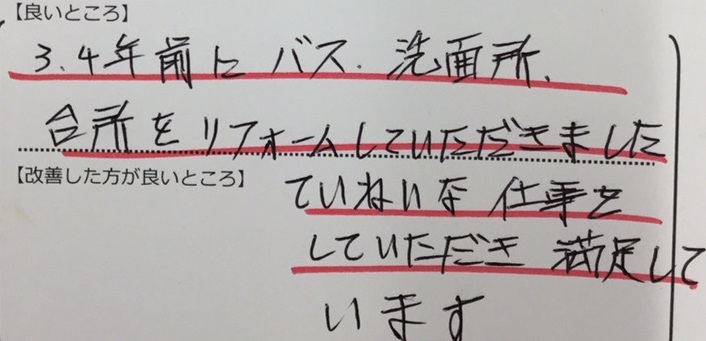 【良いところ】
3.4年前に バス.洗面所.
台所をリフォームしていただきました
【改善した方が良いところ】
ていねいな 仕事を
していただき 満足して
います